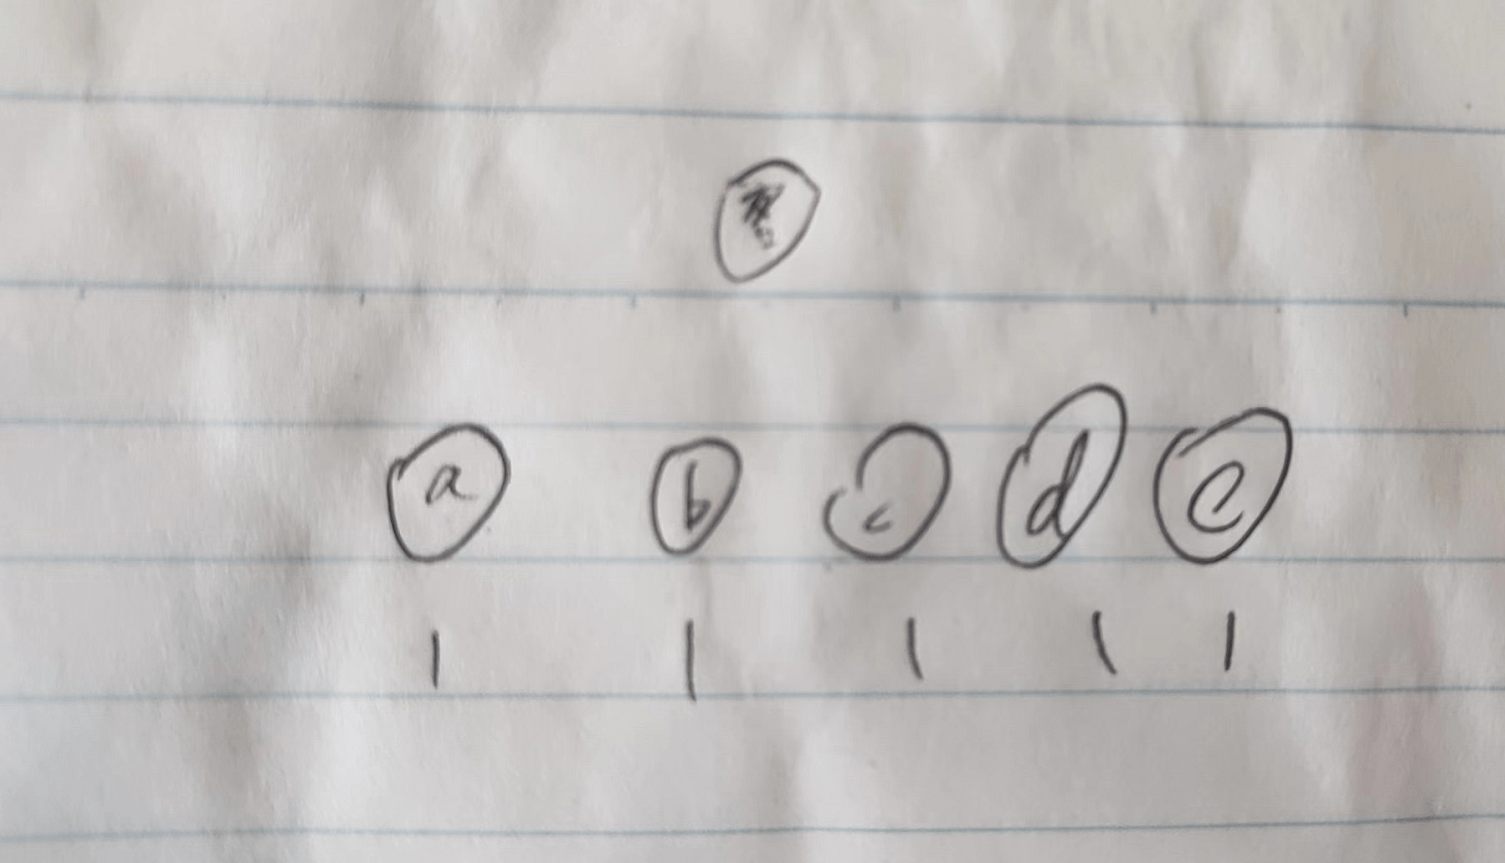 a b c d e
1 1 1 1 1